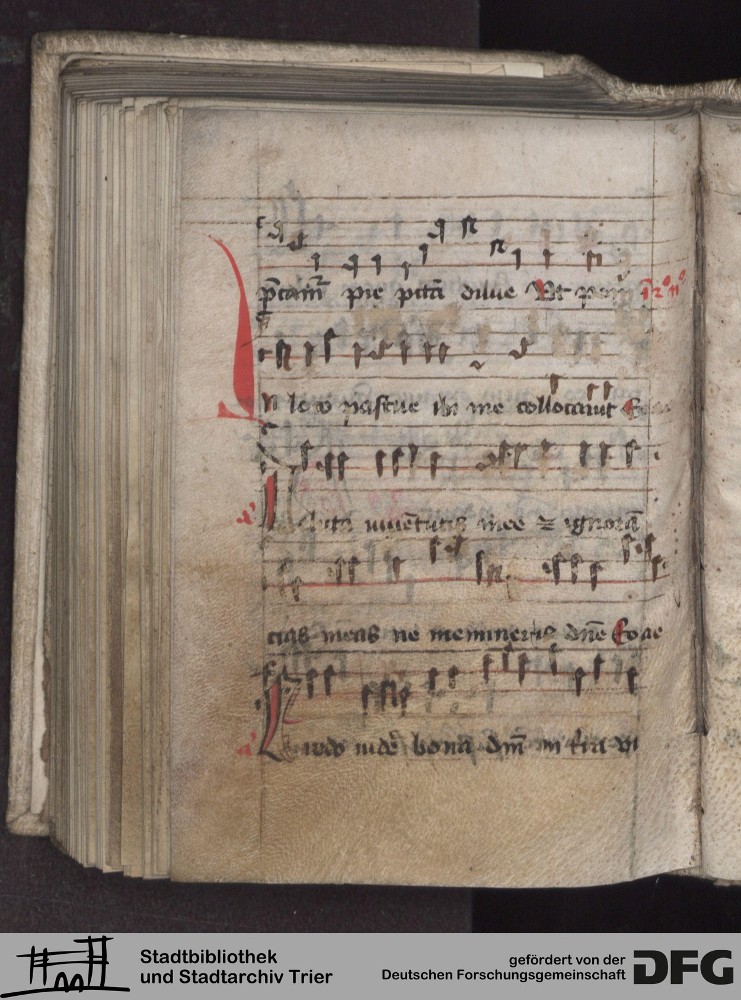 pie dilue Et
In loco pascue ibi me collocauit Euouae
Delicta iuuentutis mee ⁊ ignorā
cias meas ne memineris dn̄e Euouae
Credo uidē bona dn̄i in t̄ra vi
Stadtbibliothek
und Stadtarchiv Trier
gefördert von der
Deutschen Forschungsgemeinschaft
DFG